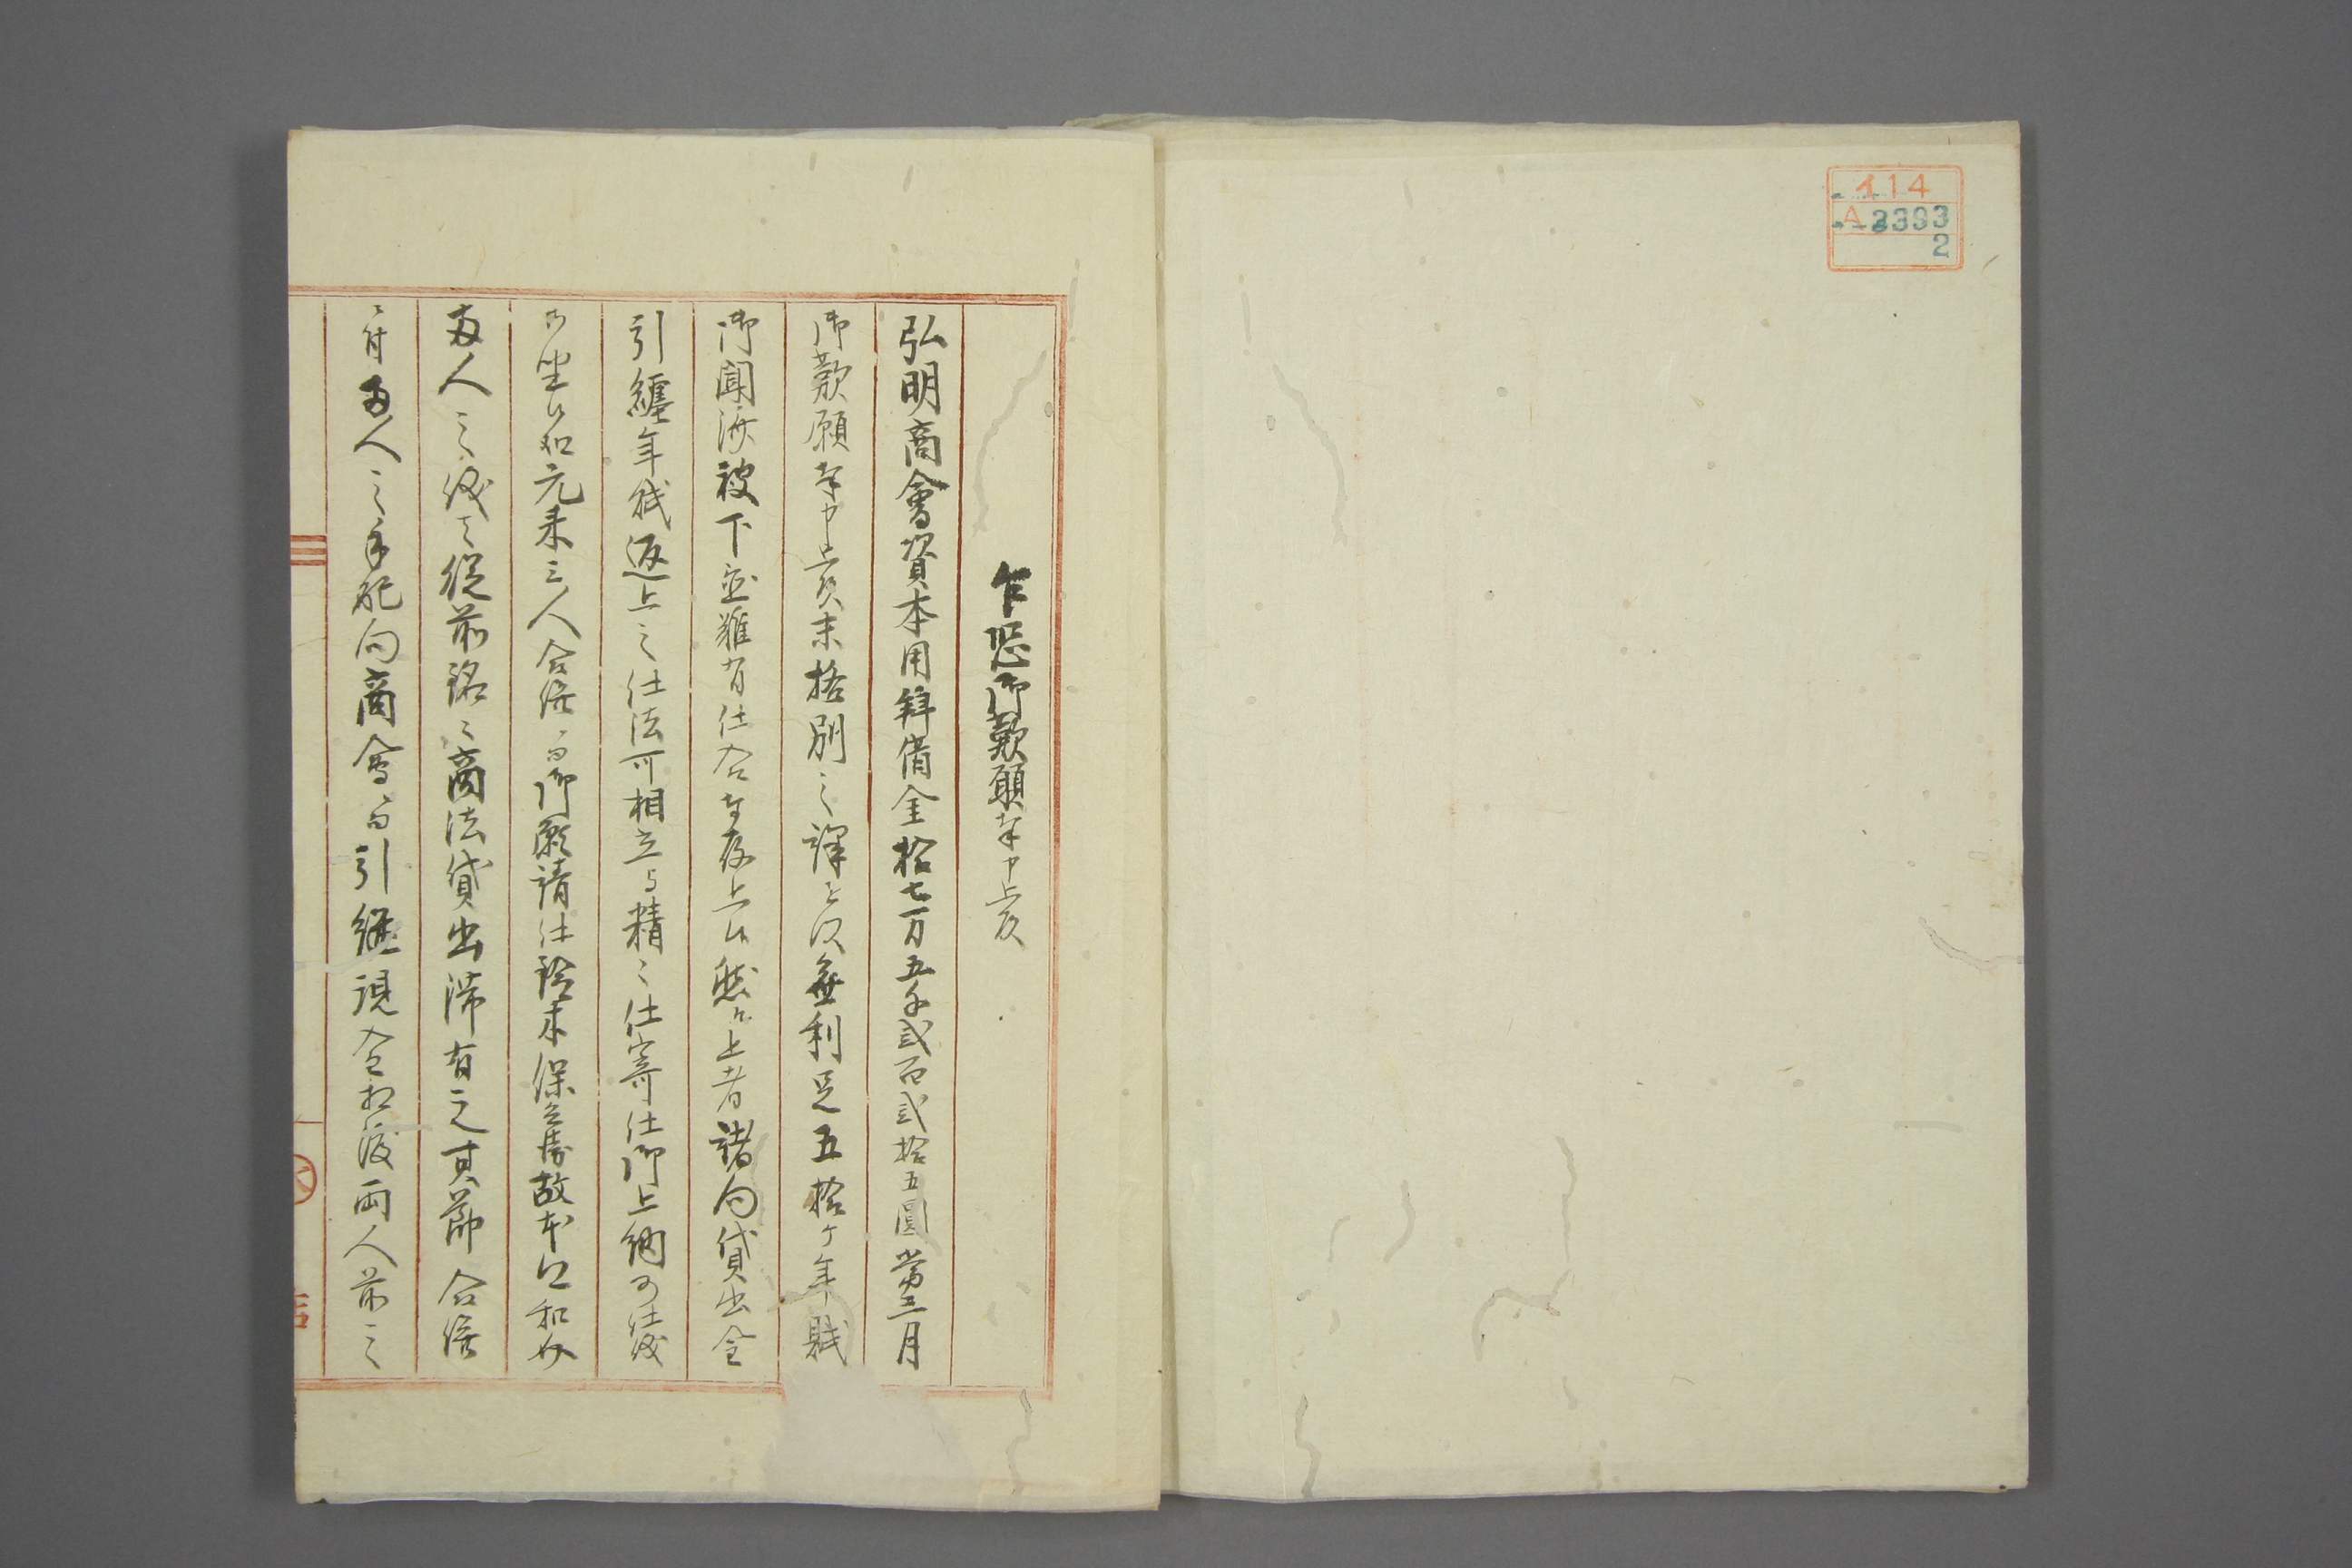 イ14
A3393
2
乍恐御歎願奉申上候
弘明商會資本用拜借金拾七万五千弐百弐拾五圓當三月
御歎願奉申上候末格別之譯を以無利足五拾ケ年賦
御聞済被下置難有仕合奉存上候然ル上者諸向貸出金
引纏年賦返上之仕法可相立与精々仕寄仕御上納可仕候
乃坐候処元来三人合併ニ而御願請仕 来 故
両人之 従前 之商法貸出滞有之其節合併
ニ付両人之手 向商會ニ而引継現金相渡両人前之